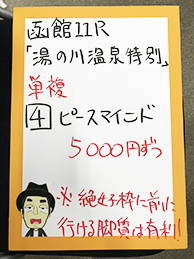 函館11R
「湯の川温泉特別」
単複
4 ピースマインド
5000円ずつ
※絶好枠に前に
行ける脚質は有利!